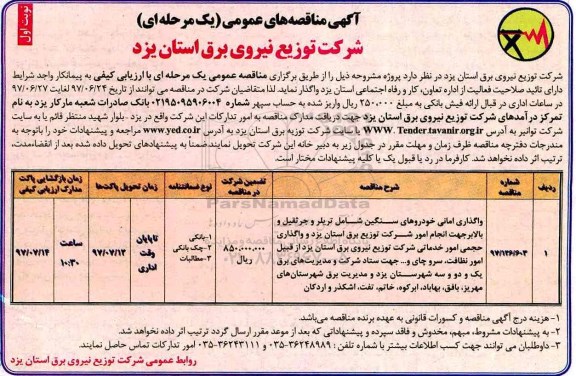 نوبت اول
آگهی مناقصه‌های عمومی (یک مرحله ای)
شرکت توزیع نیروی برق استان یزد
شرکت توزیع نیروی برق استان یزد در نظر دارد پروژه مشروحه ذیل را از طریق برگزاری مناقصه عمومی یک مرحله ای با ارزیابی کیفی به پیمانکار واجد شرایط
دارای تائید صلاحیت فعالیت از اداره تعاون، کار و رفاه اجتماعی استان یزد واگذار نماید. لذا متقاضیان شرکت در مناقصه می توانند از تاریخ ۹۷/۰۶/۲۴ لغایت ۹۷/۰۶/۲۷
در ساعات اداری در قبال ارائه فیش بانکی به مبلغ ۲۵۰،۰۰۰ ریال واریز شده به حساب سپهر شماره ۰۲۱۹۵۰۹۵۹۰۶۰۰۴ بانک صادرات شعبه مارکار یزد به نام
تمرکز درآمدهای شرکت توزیع برق استان یزد جهت دریافت مدارک مناقصه به امور تدارکات این شرکت واقع در یزد . بلوار شهید منتظر قائم یا به سایت
شرکت توانیر به آدرس WWW. Tender.tavanir.org.ir یا سایت شرکت توزیع برق استان یزد به آدرس www.yed.co.ir مراجعه و پیشنهادات خود را باتوجه به
مندرجات دفترچه مناقصه ظرف زمان و مهلت مقرر در جدول زیر به دبیر خانه این شرکت تحویل نمایند.ضمناً به پیشنهادهای تحویل داده شده بعد از انقضاءمدت،
ترتیب اثر داده نخواهد شد. کارفرما در رد یا قبول یک یا کلیه پیشنهادات مختار است.
ردیف
شماره مناقصه
شرح مناقصه
تضمین شرکت در مناقصه
نوع ضمانتنامه
زمان تحویل پاکت‌ها
زمان بازگشایی پاکت مدارک ارزیابی کیفی
۱
۹۷/۱۲۶/۶۰۳
واگذاری امانی خودروهای سنگین شامل تریلر و جرثقیل و
بالابرجهت انجام امور شرکت توزیع برق استان یزد و واگذاری
حجمی امور خدماتی شرکت توزیع نیروی برق استان یزد از قبیل
امور نظافت، سرو چای و... جهت ستاد شرکت و مدیریت‌های برق
یک و دو و سه شهرستان یزد و مدیریت برق شهرستان‌های
مهریز، بافق، بهاباد، ابرکوه، خاتم، تفت، اشکذر و اردکان
۸۵۰،۰۰۰،۰۰۰ ریال
۱-بانکی
۲-چک بانکی
۳-مطالبات
تاپایان وقت اداری
۹۷/۰۷/۱۳
ساعت ۱۰:۳۰
۹۷/۰۷/۱۴
۱- هزینه درج آگهی مناقصه و کسورات قانونی به عهده برنده مناقصه می‌باشد.
۲- به پیشنهادات مشروط، مبهم، مخدوش و فاقد سپرده و پیشنهاداتی که بعد از موعد مقرر ارسال گردد ترتیب اثر داده نخواهد شد.
۳- داوطلبان می توانند جهت کسب اطلاعات بیشتر با شماره تلفن : ۳۶۲۴۸۹۸۹-۰۳۵ و ۳۶۲۴۳۱۱۱-۰۳۵ امور تدارکات تماس حاصل نمایند.
روابط عمومی شرکت توزیع نیروی برق استان یزد
ParsNamadData